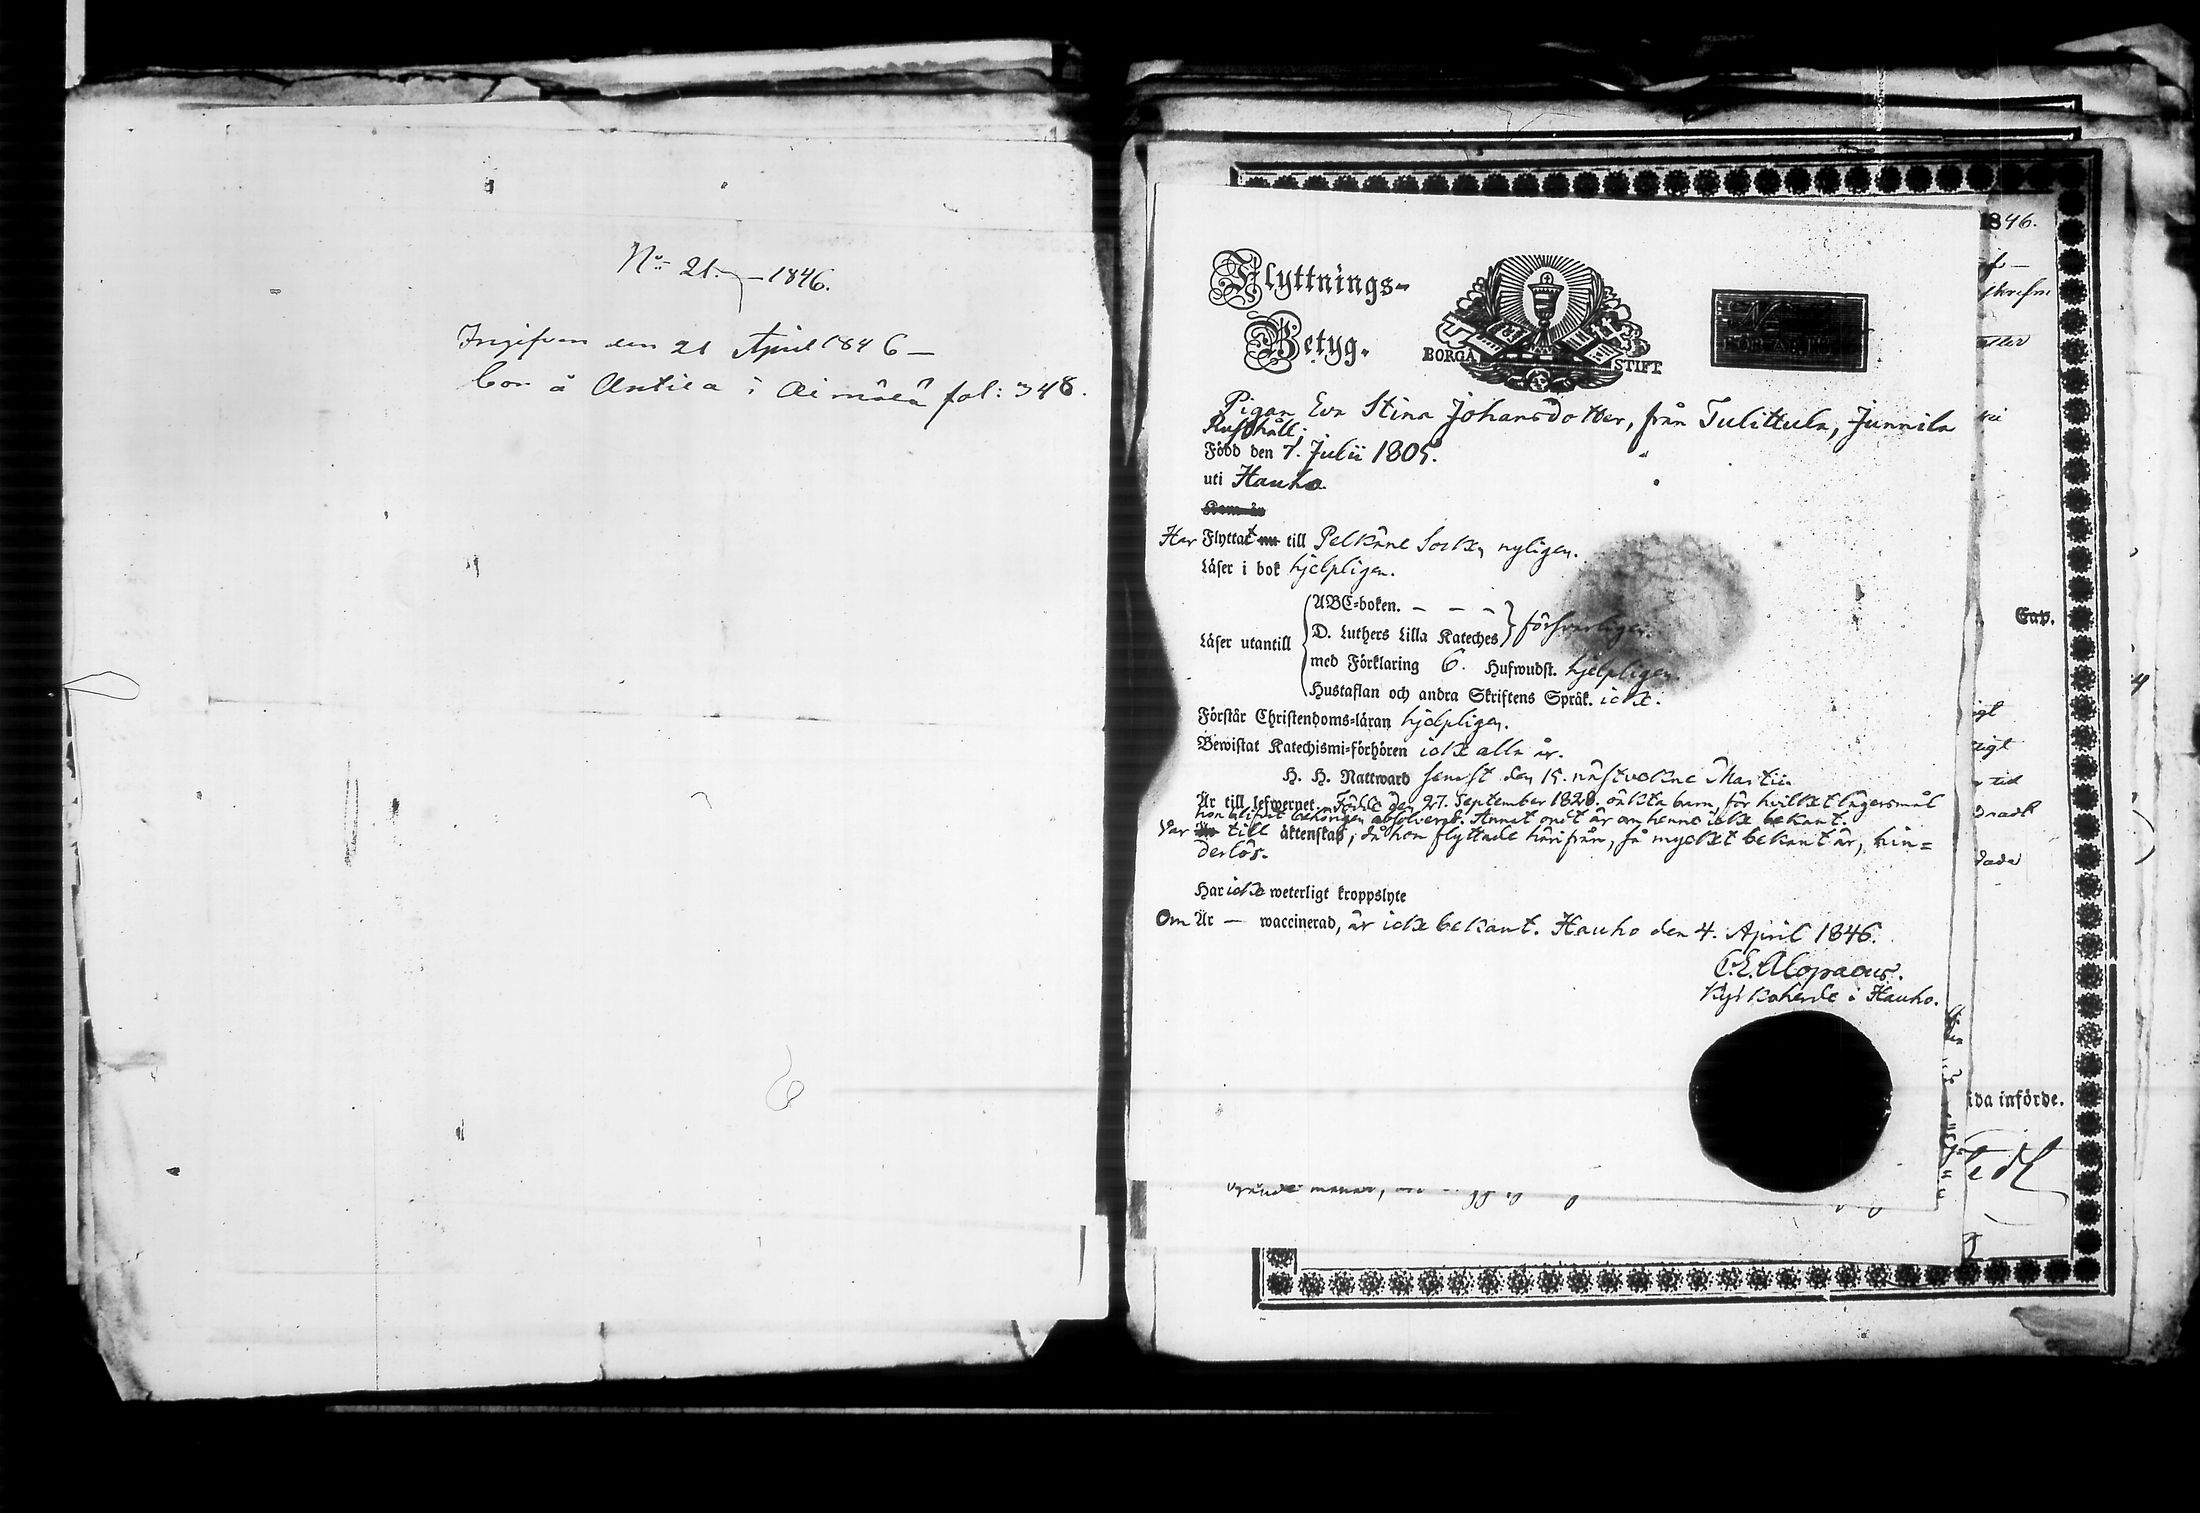 No 21. – 1846.
Ingifven den 21 April 1846 –
bor å Anttila i Aimälä fol: 348.
Flyttnings-
Betyg.
BORGÅ STIFT
Pigan Eva Stina Johansdotter, från Tulittula, Junnila
Rusthåll;
Född den 7. Julii 1805.
uti Hauho
Kom in
Har Flyttat till Pelkäne Socken nyligen.
Läser i bok hjelpligen.
Läser utantill
ABC-boken. – – –
D. Luthers Lilla Kateches försvarligen.
med Förklaring 6. Hufwudst. hjelpligen
Hustaflan och andra Skriftens Språk. icke.
Förstår Christendoms-läran hjelpligen.
Bewistat Katechismi-förhören icke alla år.
H. H. Nattward senast den 15. nästvekne Martii.
Är till lefwernet. Födde den 27. September 1828. oäkta barn, för hvilket lägersmål
hon blifvit behörigen absolverad. Annat ondt är om henne icke bekant.
Var till äktenskap, då hon flyttade härifrån, så myckt bekant är, hin=
derlös.
Har icke weterligt kroppslyte
Om Är — waccinerad, är icke bekant. Hauho den 4. April 1846.
C. E. Alopaeus.
Kyrkoherde i Hauho.
1846.
Eav.
ida införde.